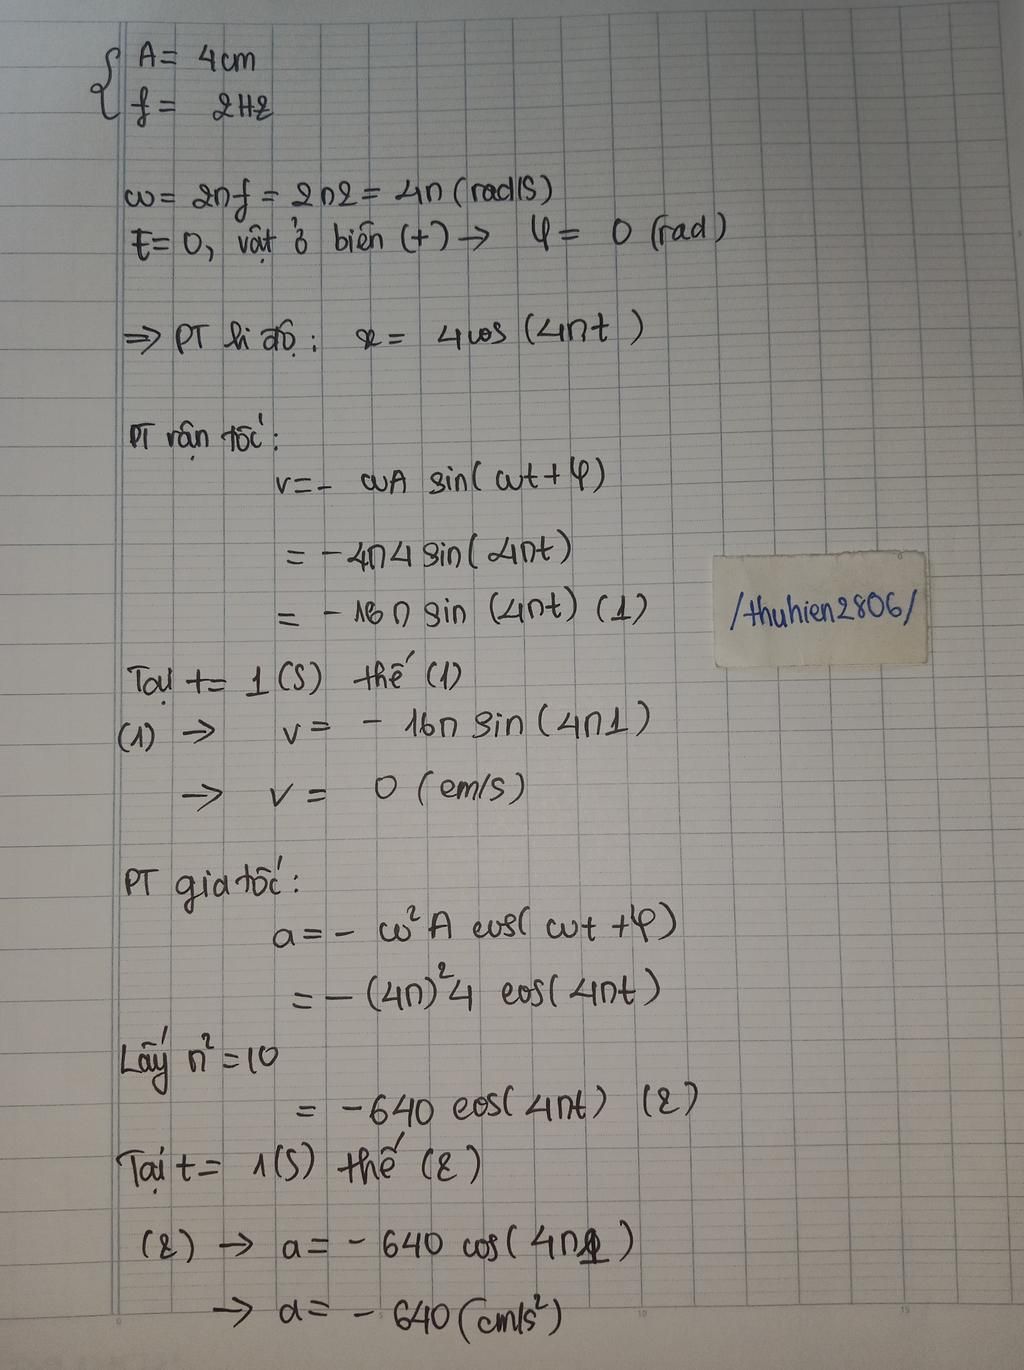 A = 4cm
f = 2Hz
ω = 2πf = 2π2 = 4π (rad/s)
t=0, vật ở biên (+) → φ = 0 (rad)
⇒ PT li độ: x = 4cos (4πt)
PT vận tốc:
v = - ωA sin(ωt+φ)
= - 4π4 sin(4πt)
= - 16π sin (4πt) (1)
/thuhien2806/
Tại t = 1 (s) thế (1)
(1) → v = - 16π sin (4π1)
→ v = 0 (cm/s)
PT gia tốc:
a = - ω² A cos( ωt + φ)
= - (4π)² 4 cos( 4πt)
Lấy π² = 10
= -640 cos( 4πt) (2)
Tại t = 1(s) thế (2)
(2) → a = - 640 cos( 4π1 )
→ a = - 640 (cm/s²)